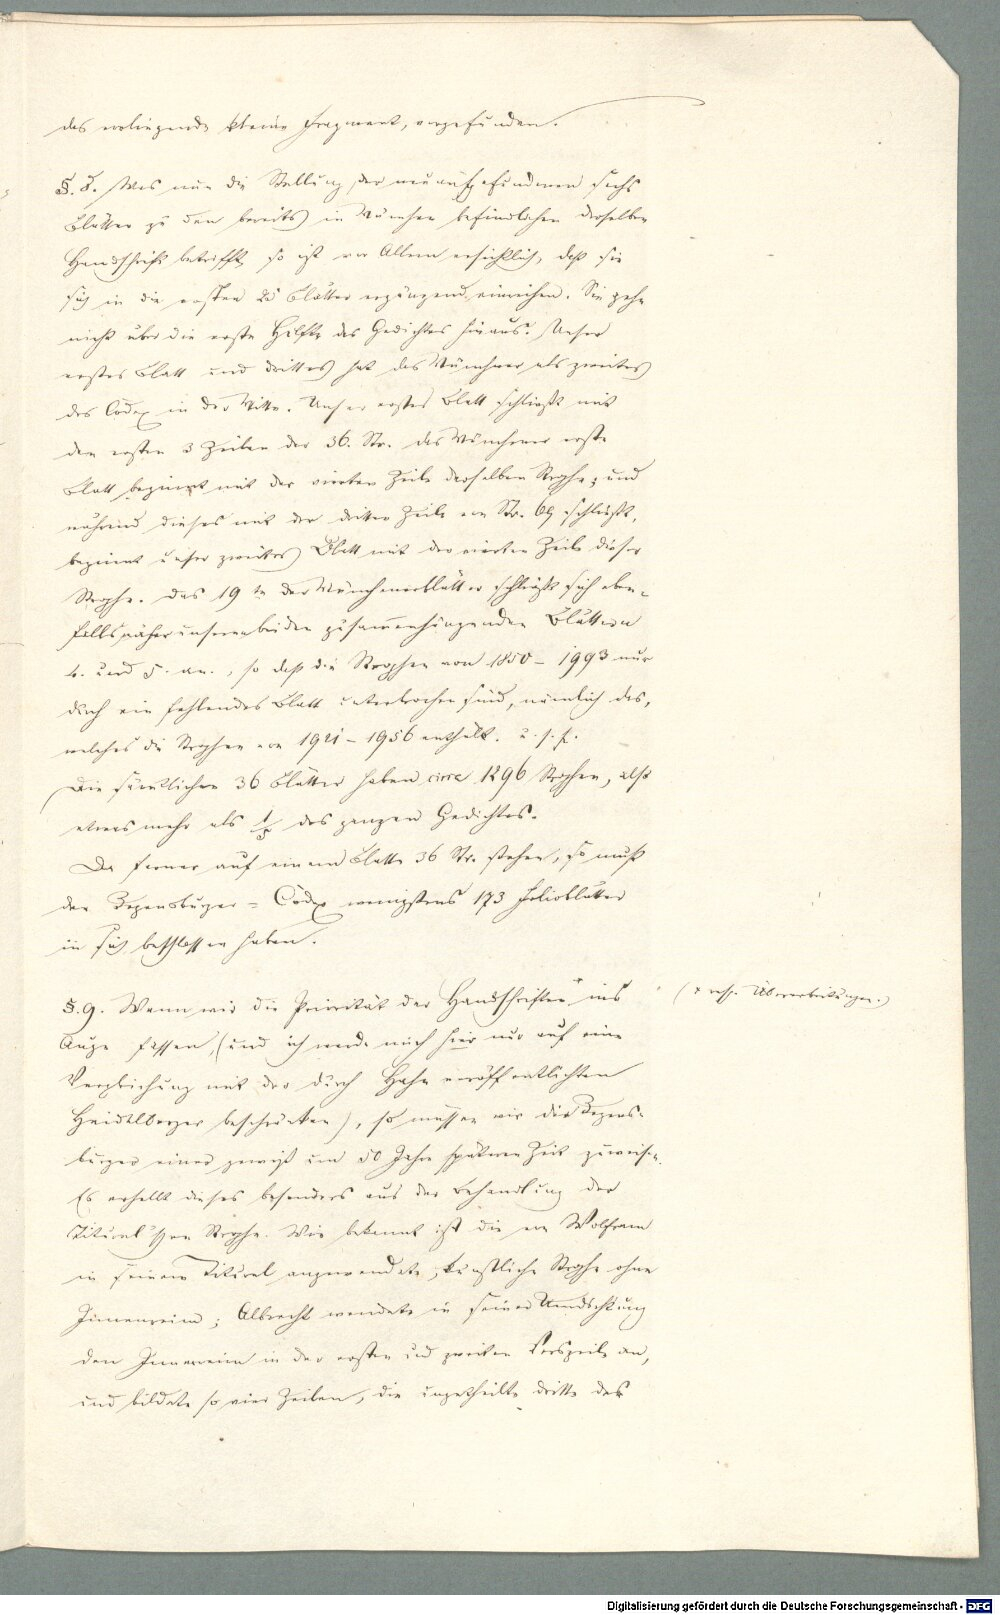 das vorliegende kleine Fragment, vorgefunden.
§. 8. Was nun die Stellung der neuaufgefundenen sechs
Blätter zu den bereits in München befindlichen derselben
Handschrift betrifft, so ist vor Allem ersichtlich, daß sie
sich in die ersten 25 Blätter ergänzend einreihen. Sie gehen
nicht über die erste Hälfte des Gedichtes hinaus. Unser
erstes Blatt und drittes hat das Münchner als zweites
des Codex in der Mitte. Unser erstes Blatt schließt mit
den ersten 3 Zeilen der 36. Str. das Münchener erste
Blatt beginnt mit der vierten Zeile derselben Strophe; und
während dieses mit der dritten Zeile von Str. schließt,
beginnt unser zweites Blatt mit der vierten Zeile dieser
Strophe. Das 19te der Münchenerblätter schließt sich eben-
falls näher unseren beiden zusammenhängenden Blättern
4. und 5. an, so daß die Strophen von 1850 – 1993 nur
durch ein fehlendes Blatt unterbrochen sind, nämlich das,
welches die Strophen von 1921 – 1956 enthält. u. s. f.
Die sämtlichen 36 Blätter haben circa 1296 Strophen, also
etwas mehr als 1/5 des ganzen Gedichtes.
Da ferner auf einem Blatte 36 Str. stehen, so muß
der Regensburger = Codex wenigstens 173 Folioblätter
in sich beschlossen haben.
§. 9. Wenn wir die Priorität der Handschriften * ins
(* resp. Überarbeitungen.)
Auge fassen, (und ich werde mich hier nur auf eine
Vergleichung mit der durch Hahn veröffentlichten
Heidelberger beschränken), so müssen wir die Regens-
burger einer gewiß um 50 Jahre späteren Zeit zuweisen.
Es erhellt dieses besonders aus der Behandlung der
Titurel'schen Strophe. Wie bekannt ist die von Wolfram
in seinem Titurel angewendete, künstliche Strophe ohne
Innenreim; Albrecht wendete in seiner Umdichtung
den Innenreim in der ersten und zweiten Verszeile an,
und bildete so vier Zeilen, die ungetheilte dritte des
Digitalisierung gefördert durch die Deutsche Forschungsgemeinschaft - DFG